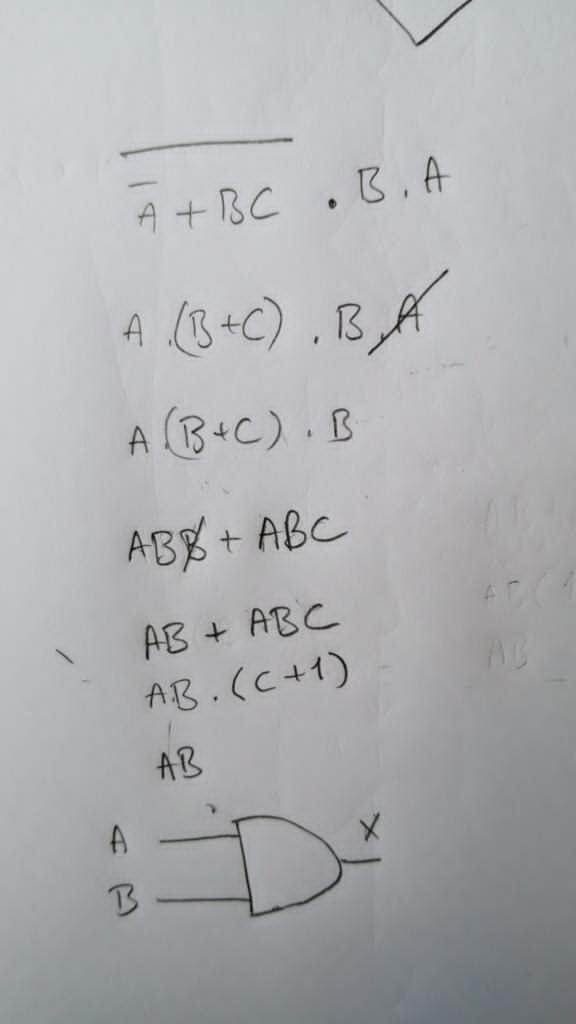 $\overline{\overline{A} + BC} . B . A$
A .(B+C) . B . ~~A~~
A (B+C) . B
AB~~B~~ + ABC
AB + ABC
AB . (C+1)
AB
A
X
B